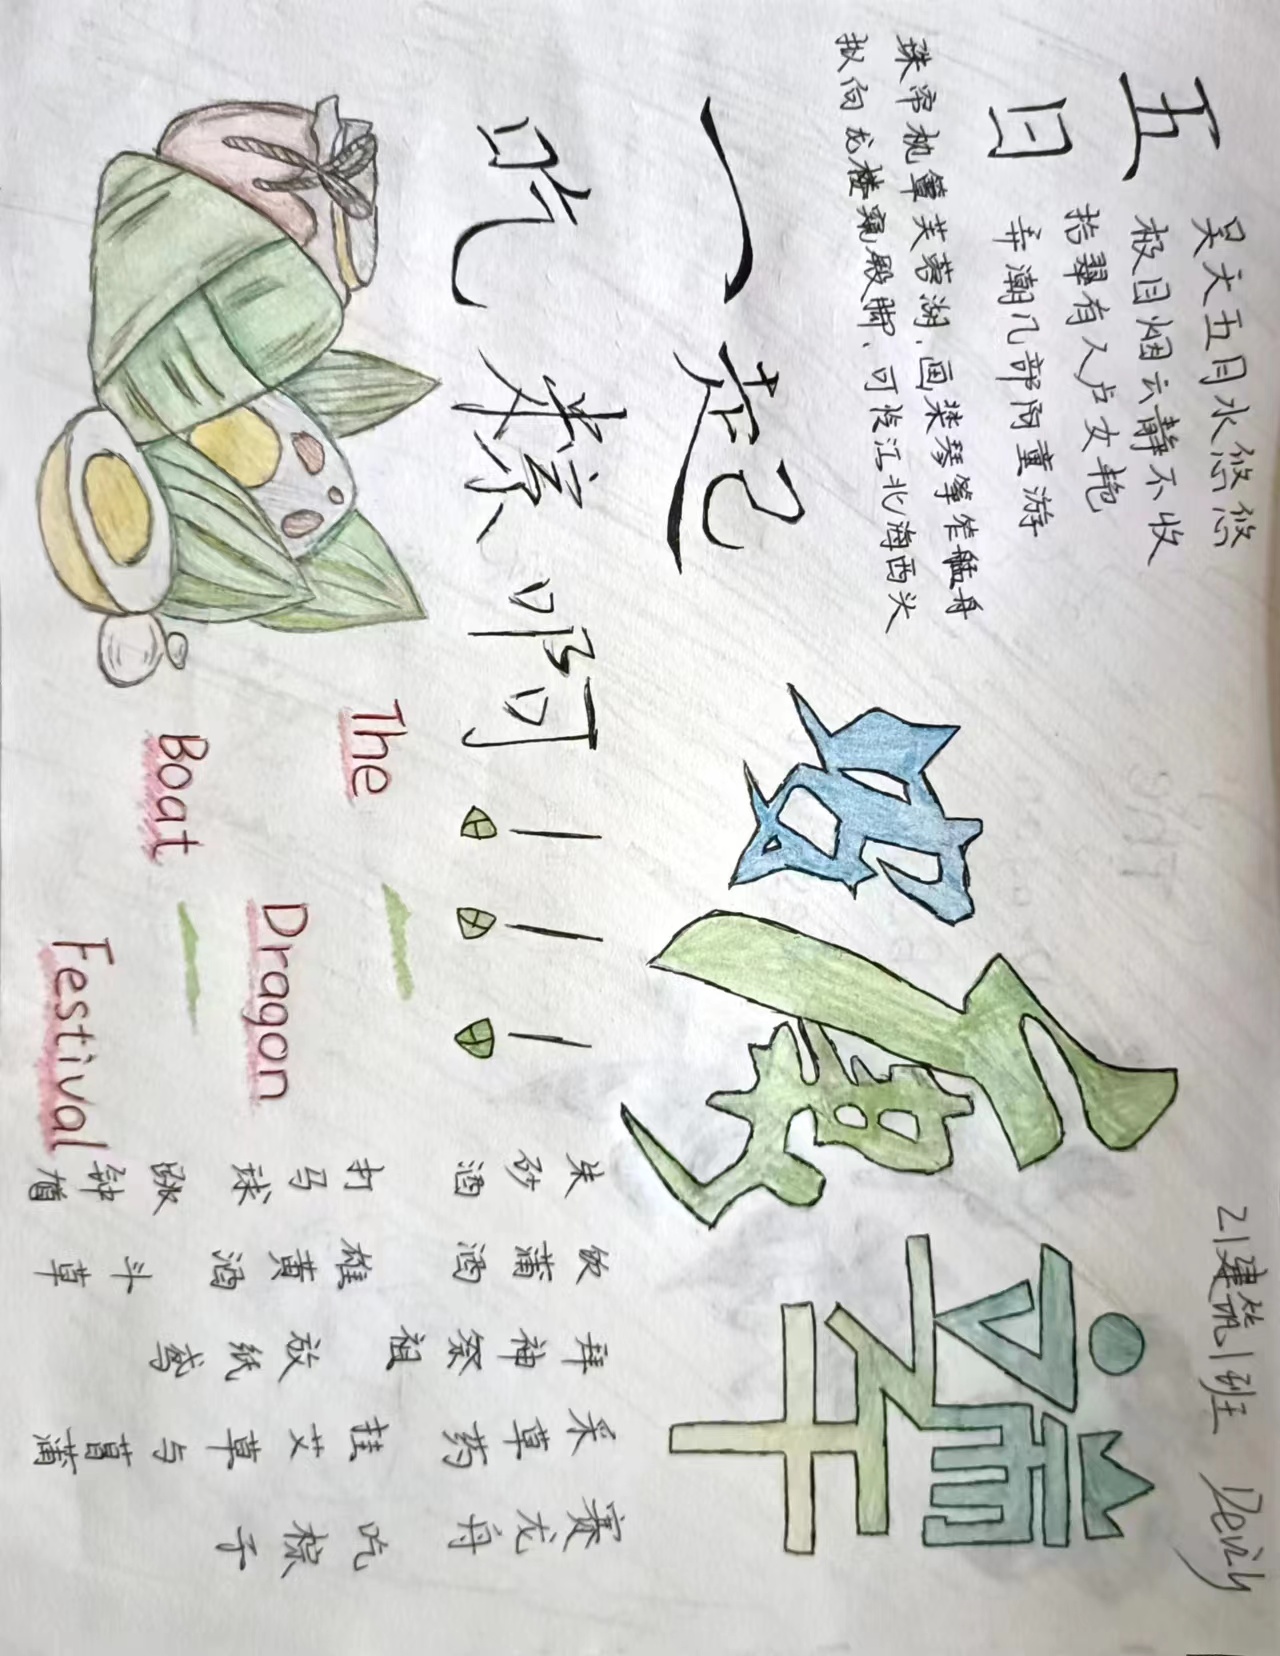 21建筑1班
五月
吴天五月水悠悠
极目烟云静不收
拾翠有人卢女艳
弄潮几部阿童游
珠帘枕簟芙蓉湖,画桨琴筝笮艋舟
拟向龙楼窥殿脚,可怜江北海西头
端午
一起
吃粽啊!!!
The
Dragon
Boat
Festival
朱砂酒
打马球
跳钟馗
饮蒲酒
雄黄酒
斗草
拜神祭祖
放纸鸢
采草药
挂艾草与菖蒲
赛龙舟
吃粽子